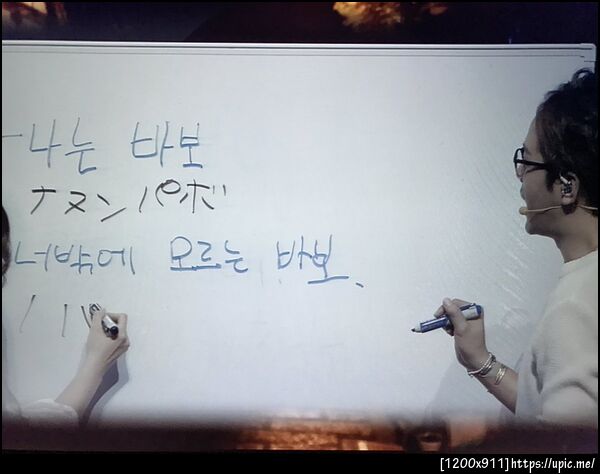 나는 바보
ナヌンパボ
너밖에 모르는 바보.
[1200x911]https://upic.me/